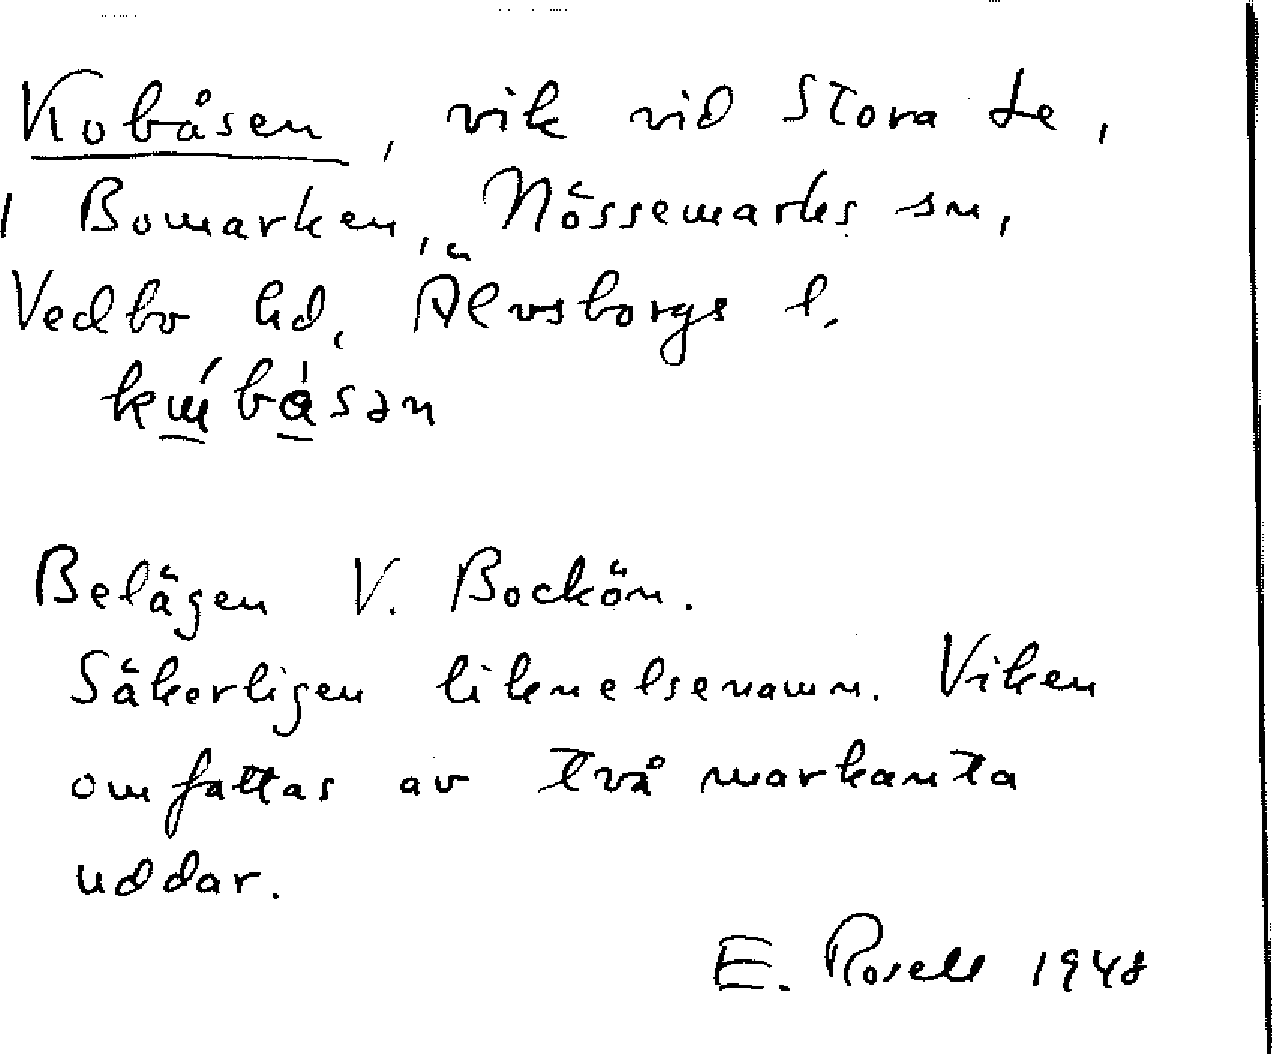 Kobåsen, vik vid Stora Le,
i Bomarken, Nössemarks sn,
Vedbo hd, Älvsborgs l.
Belägen V. Bockön.
Säkerligen liknelsenamn. Viken
omfattas av två markanta
uddar.
E. Rosell 1948